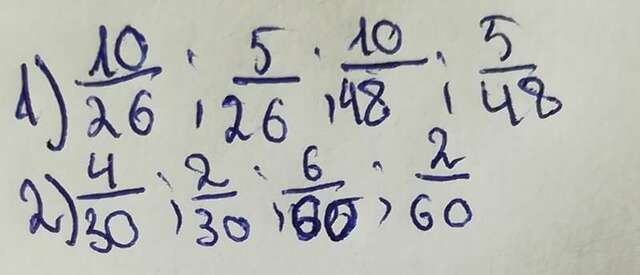 1) 10/26 ; 5/26 ; 10/48 ; 5/48
2) 4/30 ; 2/30 ; 6/60 ; 2/60